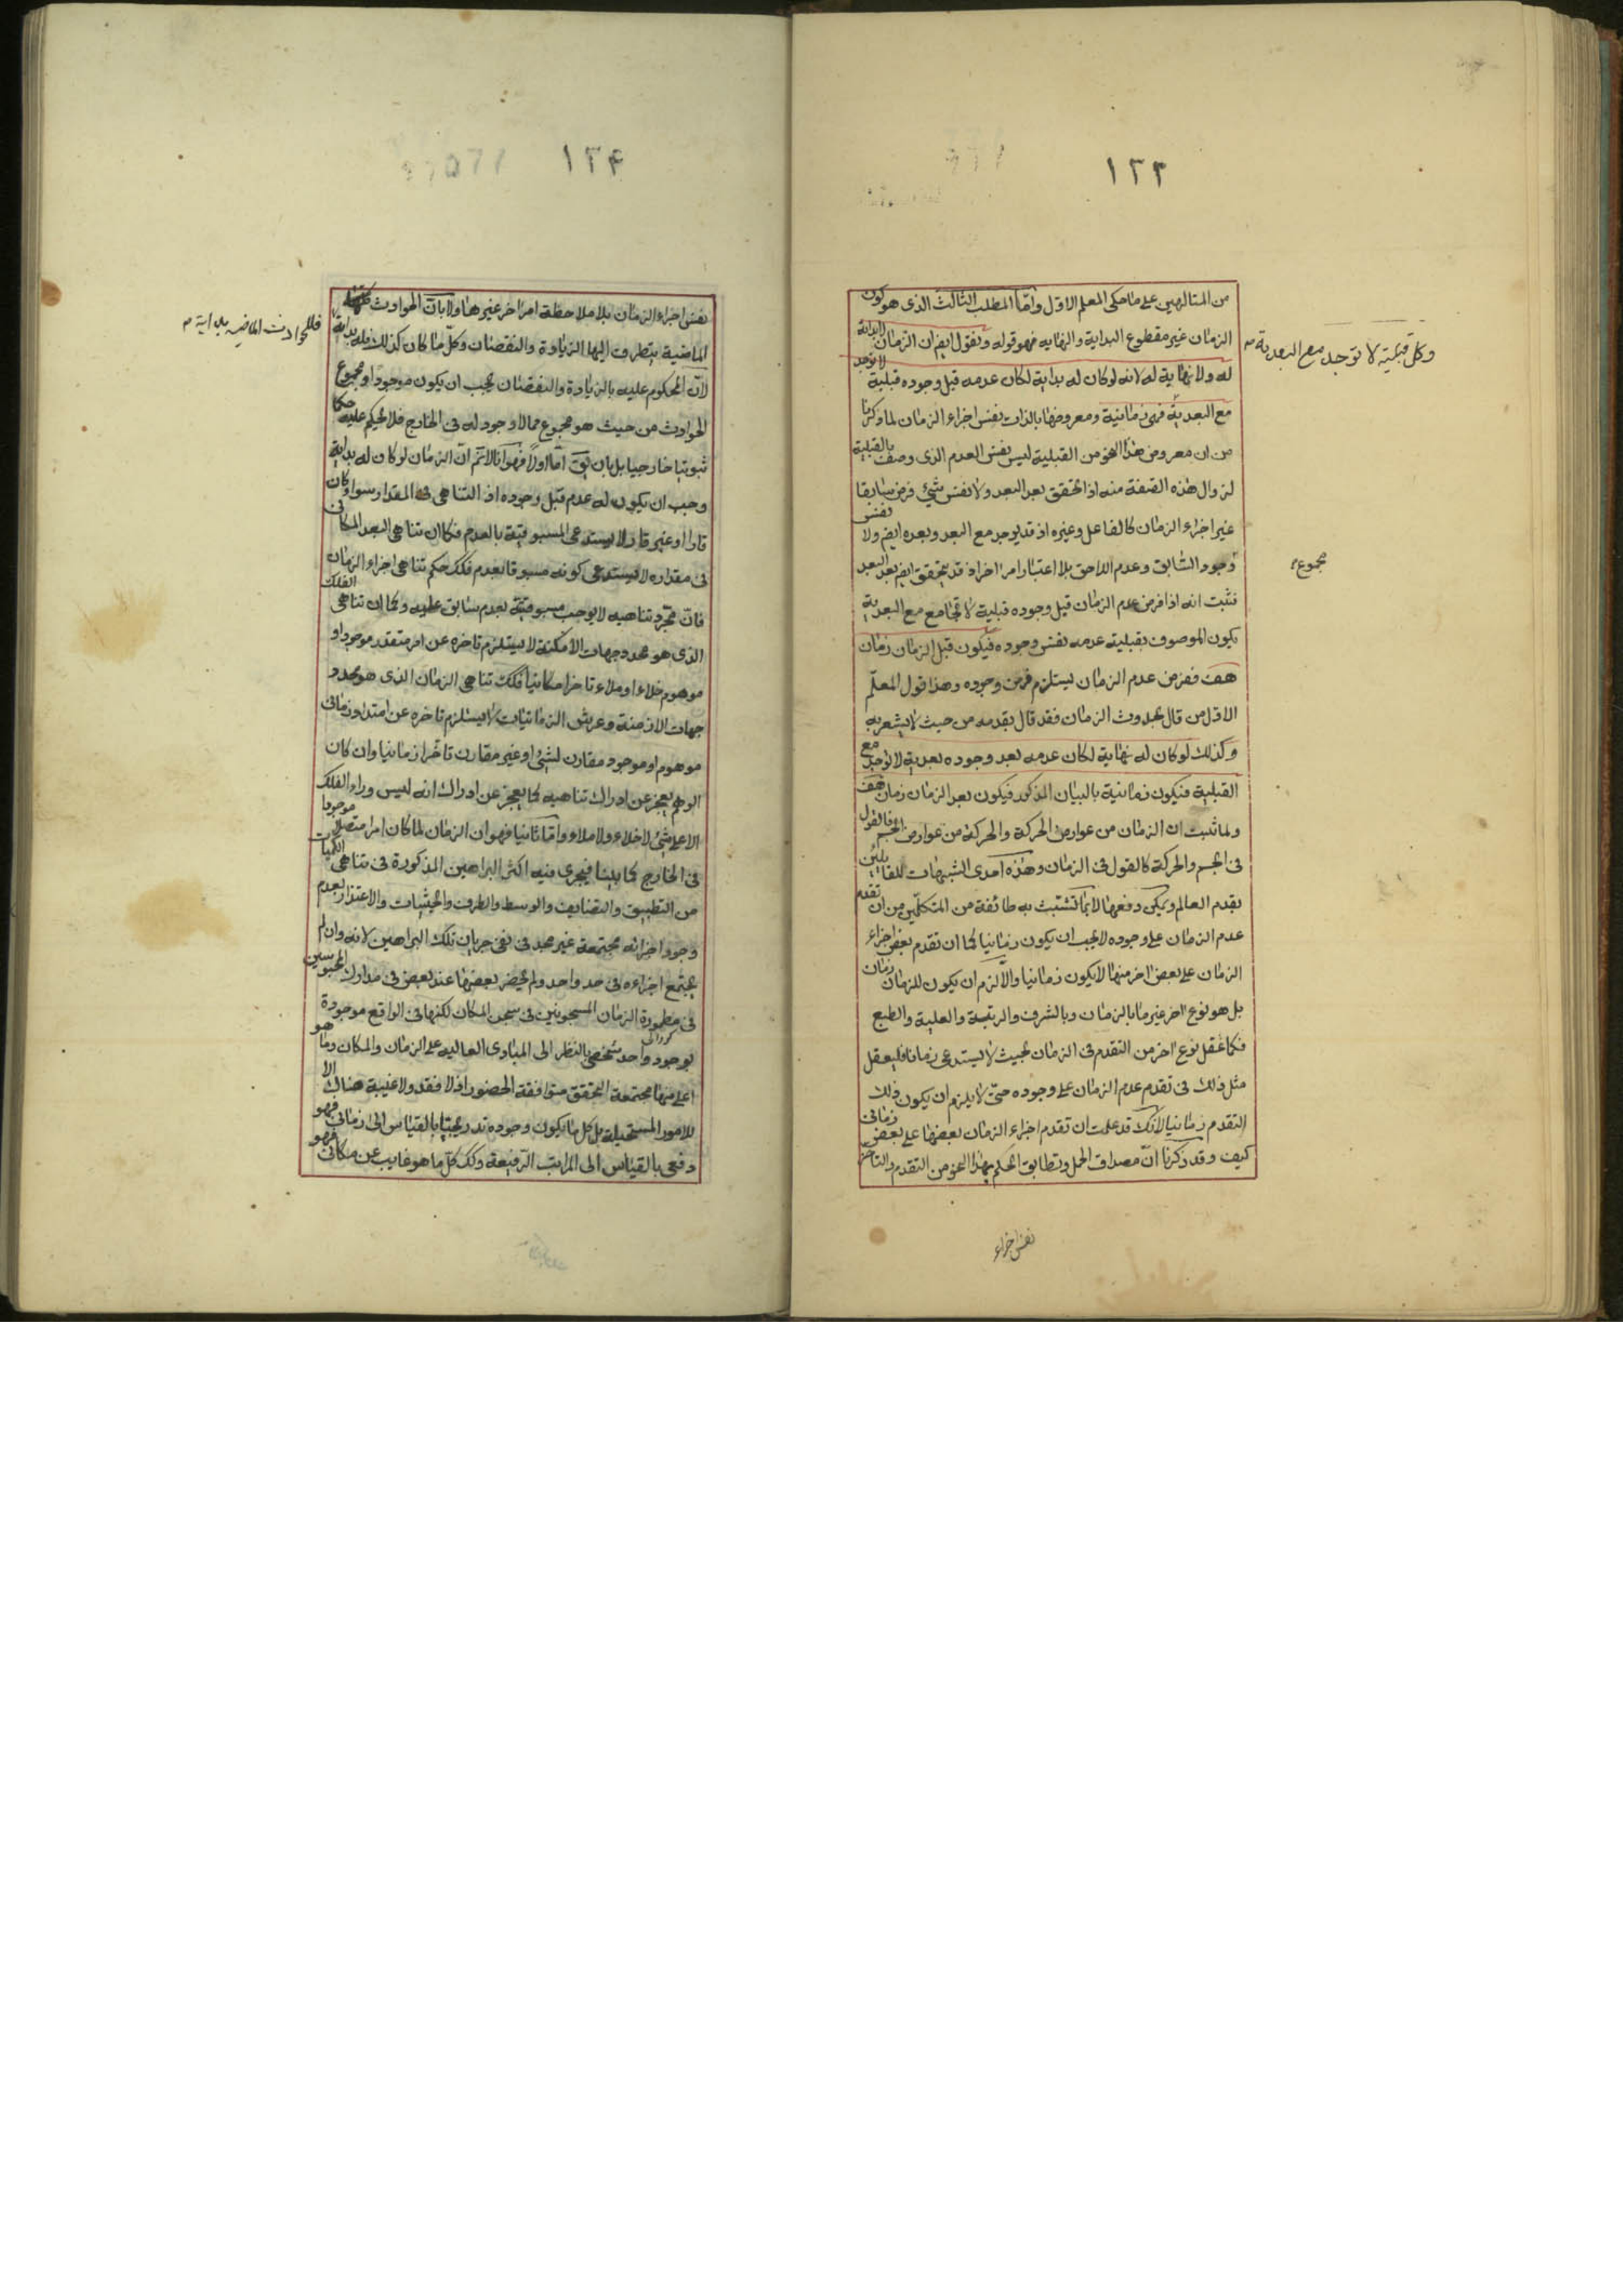 ١٢٣
من المتالهين على ما حكى المعلم الاول واما المطلب الثالث الذى هو كون
الزمان غير مقطوع البداية والنهايه فهو قوله ونقول ايضا ان الزمان لا بداية
له ولا نهاية له لانه لو كان له بداية لكان عدمه قبل وجوده قبلية لا توجد
وكل قبلية لا توجد مع البعدية
مع البعدية فهى زمانية ومعروضها بالذات نفس اجزاء الزمان لما ذكرنا
من ان معروض هذا النحو من القبلية ليس نفس العدم الذى وصف بالقبلية
لزوال هذه الصفة منه اذا تحقق بعد البعد ولا نفس شئ فرض سابقا
غير اجزاء الزمان كالفاعل وغيره اذ قد يوجد مع البعد وبعده ايضم ولا نفس
مجموع
وجود السابق وعدم اللاحق بلا اعتبار امر اخر اذ قد يتحقق ايضم بعد البعد
فثبت انه اذا فرض عدم الزمان قبل وجوده قبلية لا تجامع مع البعدية
يكون الموصوف بقبليته عدمه نفس وجوده فيكون قبل الزمان زمان
هف ففرض عدم الزمان يستلزم فرض وجوده وهذا قول المعلم
الاول من قال بحدوث الزمان فقد قال بقدمه من حيث لا يشعر به
وكذلك لو كان له نهاية لكان عدمه بعد وجوده بعدية لا توجد مع
القبلية فيكون زمانية بالبيان المذكور فيكون بعد الزمان زمان هف
ولما ثبت ان الزمان من عوارض الحركة والحركة من عوارض الجسم فالقول
فى الجسم والحركة كالقول فى الزمان وهذه احدى الشبهات للقايلين
بقدم العالم ويمكن دفعها لا بما تشبث به طائفة من المتكلمين من ان تقدم
عدم الزمان على وجوده لا يجب ان يكون زمانيا كما ان تقدم بعض اجزاء
الزمان على بعض اخر منها لا يكون زمانيا والا لزم ان يكون للزمان زمان
بل هو نوع اخر غير ما بالزمان وبالشرف والرتبة والعلية والطبع
فكما عقل نوع اخر من التقدم فى الزمان بحيث لا يستدعى زمانا فليعقل
مثل ذلك فى تقدم عدم الزمان على وجوده حتى لا يلزم ان يكون ذلك
التقدم زمانيا لانك قد علمت ان تقدم اجزاء الزمان بعضها على بعض زمانى
كيف وقد ذكرنا ان مصداق الحمل وتطابق الحكم بهذا النحو من التقدم والتاخر
نفس اجزاء
١٢۴
نفس اجزاء الزمان بلا ملاحظة امر اخر غيرها ولا بان الحوادث كلها
الماضية يتطرف اليها الزيادة والنقصان وكل ما كان كذلك فله بداية
فللحوادث الماضيه بداية
لان المحكوم عليه بالزيادة والنقصان يجب ان يكون موجودا ومجموع
الحوادث من حيث هو مجموع مما لا وجود له فى الخارج فلا يحكم عليه حكما
ثبوتيا خارجيا بل بان يق اما اولا فهو انا لا نتم ان الزمان لو كان له بداية
وجب ان يكون له عدم قبل وجوده اذ التناهى فى المقدار سواء كان
قارا او غير قار لا يستدعى المسبوقية بالعدم فكما ان تناهى البعد المكانى
فى مقداره لا يستدعى كونه مسبوقا بعدم فكك حكم تناهى اجزاء الزمان
فان مجرد تناهيه لا يوجب مسبوقيته بعدم سابق عليه وكما ان تناهى الفلك
الذى هو محدد جهات الامكنة لا يستلزم تاخره عن امر متقدر موجود او
موهوم خلاء او ملاء تاخرا مكانيا فكك تناهى الزمان الذى هو محدد
جهات الازمنة وعرش الزمانيات لا يستلزم تاخره عن امتداد زمانى
موهوم او موجود مقارن لشئ او غير مقارن تاخرا زمانيا وان كان
الوهم يعجز عن ادراك تناهيه كما يعجز عن ادراك انه ليس وراء الفلك
الاعلى شئ لا خلاء ولا ملاء واما ثانيا فهو ان الزمان لما كان امرا متصلا موجودا
فى الخارج كما بينا فيجرى فيه اكثر البراهين المذكورة فى تناهى الكميات
من التطبيق والتضايف والوسط والطرف والحيثيات والاعتذار بعدم
وجود اجزائه مجتمعة غير مجد فى نفى جريان تلك البراهين لانه وان لم
يجتمع اجزاءه فى حد واحد ولم يحضر بعضها عند بعض فى مدارك المحبوسين
فى مطمورة الزمان المسجونين فى سجن المكان لكنها فى الواقع موجودة
بوجود واحد شخصى بالنظر الى المبادى العاليه على الزمان والمكان وما هو
اعلى منها مجتمعة التحقق متوافقة الحضور اذ لا فقد ولا غيبة هناك الا
للامور المستحيلة بل كل ما يكون وجوده تدريجيا بالقياس الى زمانى فهو
دفعى بالقياس الى المراتب الرفيعة وكك كل ما هو غايب عن مكانى فهو